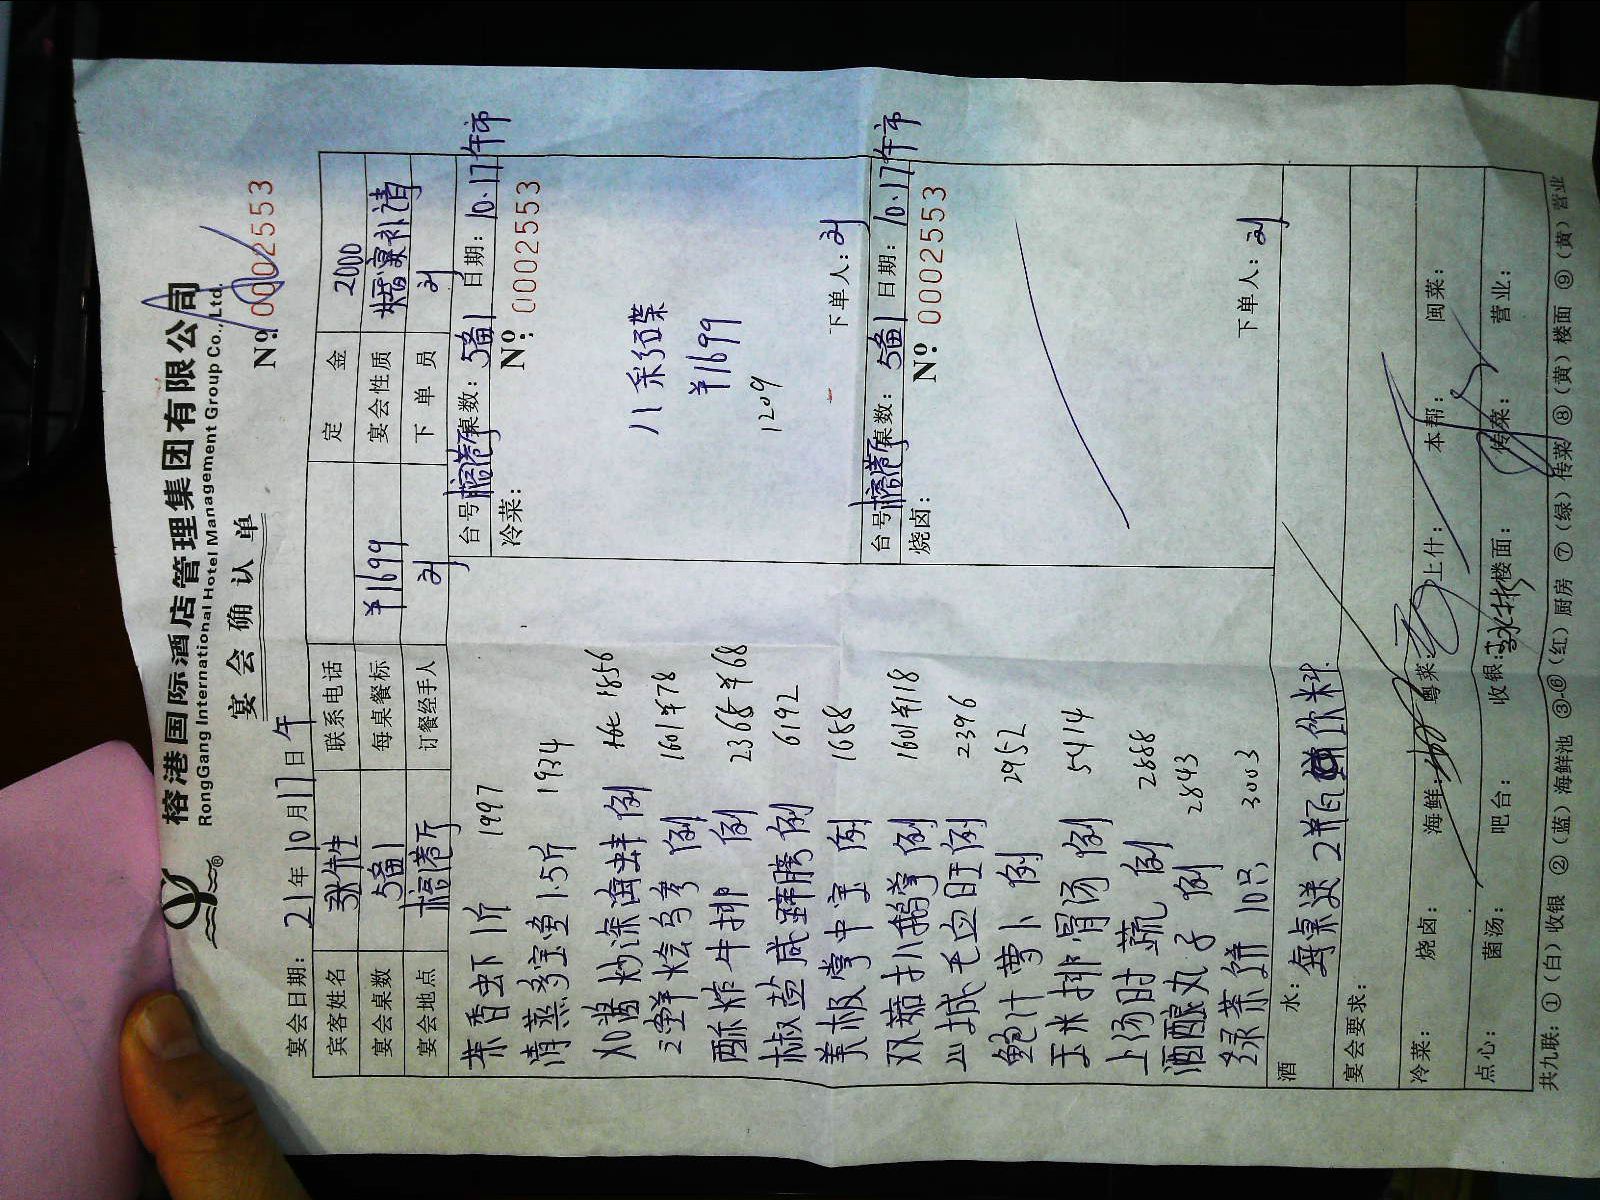 榕港国际酒店管理集团有限公司
RongGang International Hotel Management Group Co., Ltd.
宴会确认单
№: 0002553
宴会日期: 21年10月17日午
宾客姓名 联系电话 定金 2000
宴会桌数 5备1 每桌餐标 ¥1699 宴会性质 婚宴补请
宴会地点 榕港厅 订餐经手人 刘 下单员 刘
茶香虾 1斤 1997
清蒸多宝鱼 1.5斤 1934
XO酱炒深海蚌 例 1856
三鲜烩乌参 例 1601 ¥78
酥炸牛排 例 2368 ¥68
椒盐咸蹄膀 例 6192
美极掌中宝 例 1688
双菇扒鹅掌 例 1601 ¥118
山城毛血旺 例 2396
鲍汁萝卜 例 2952
玉米排骨汤 例 5414
上汤时蔬 例 2888
酒酿丸子 例 2843
绿茶饼 10只 3003
台号: 榕港厅 桌数: 5备1 日期: 10.17午市
冷菜: № 0002553
八彩碟
¥1699
1209
下单人: 刘
台号: 榕港厅 桌数: 5备1 日期: 10.17午市
烧卤: № 0002553
下单人: 刘
酒水: 每桌送2瓶饮料
宴会要求:
冷菜: 烧卤: 海鲜: 粤菜: 上什: 本帮: 闽菜:
点心: 菌汤: 吧台: 收银: 楼面: 传菜: 营业:
共九联: ①(白)收银 ②(蓝)海鲜池 ③-⑥(红)厨房 ⑦(绿)传菜 ⑧(黄)楼面 ⑨(黄)营业